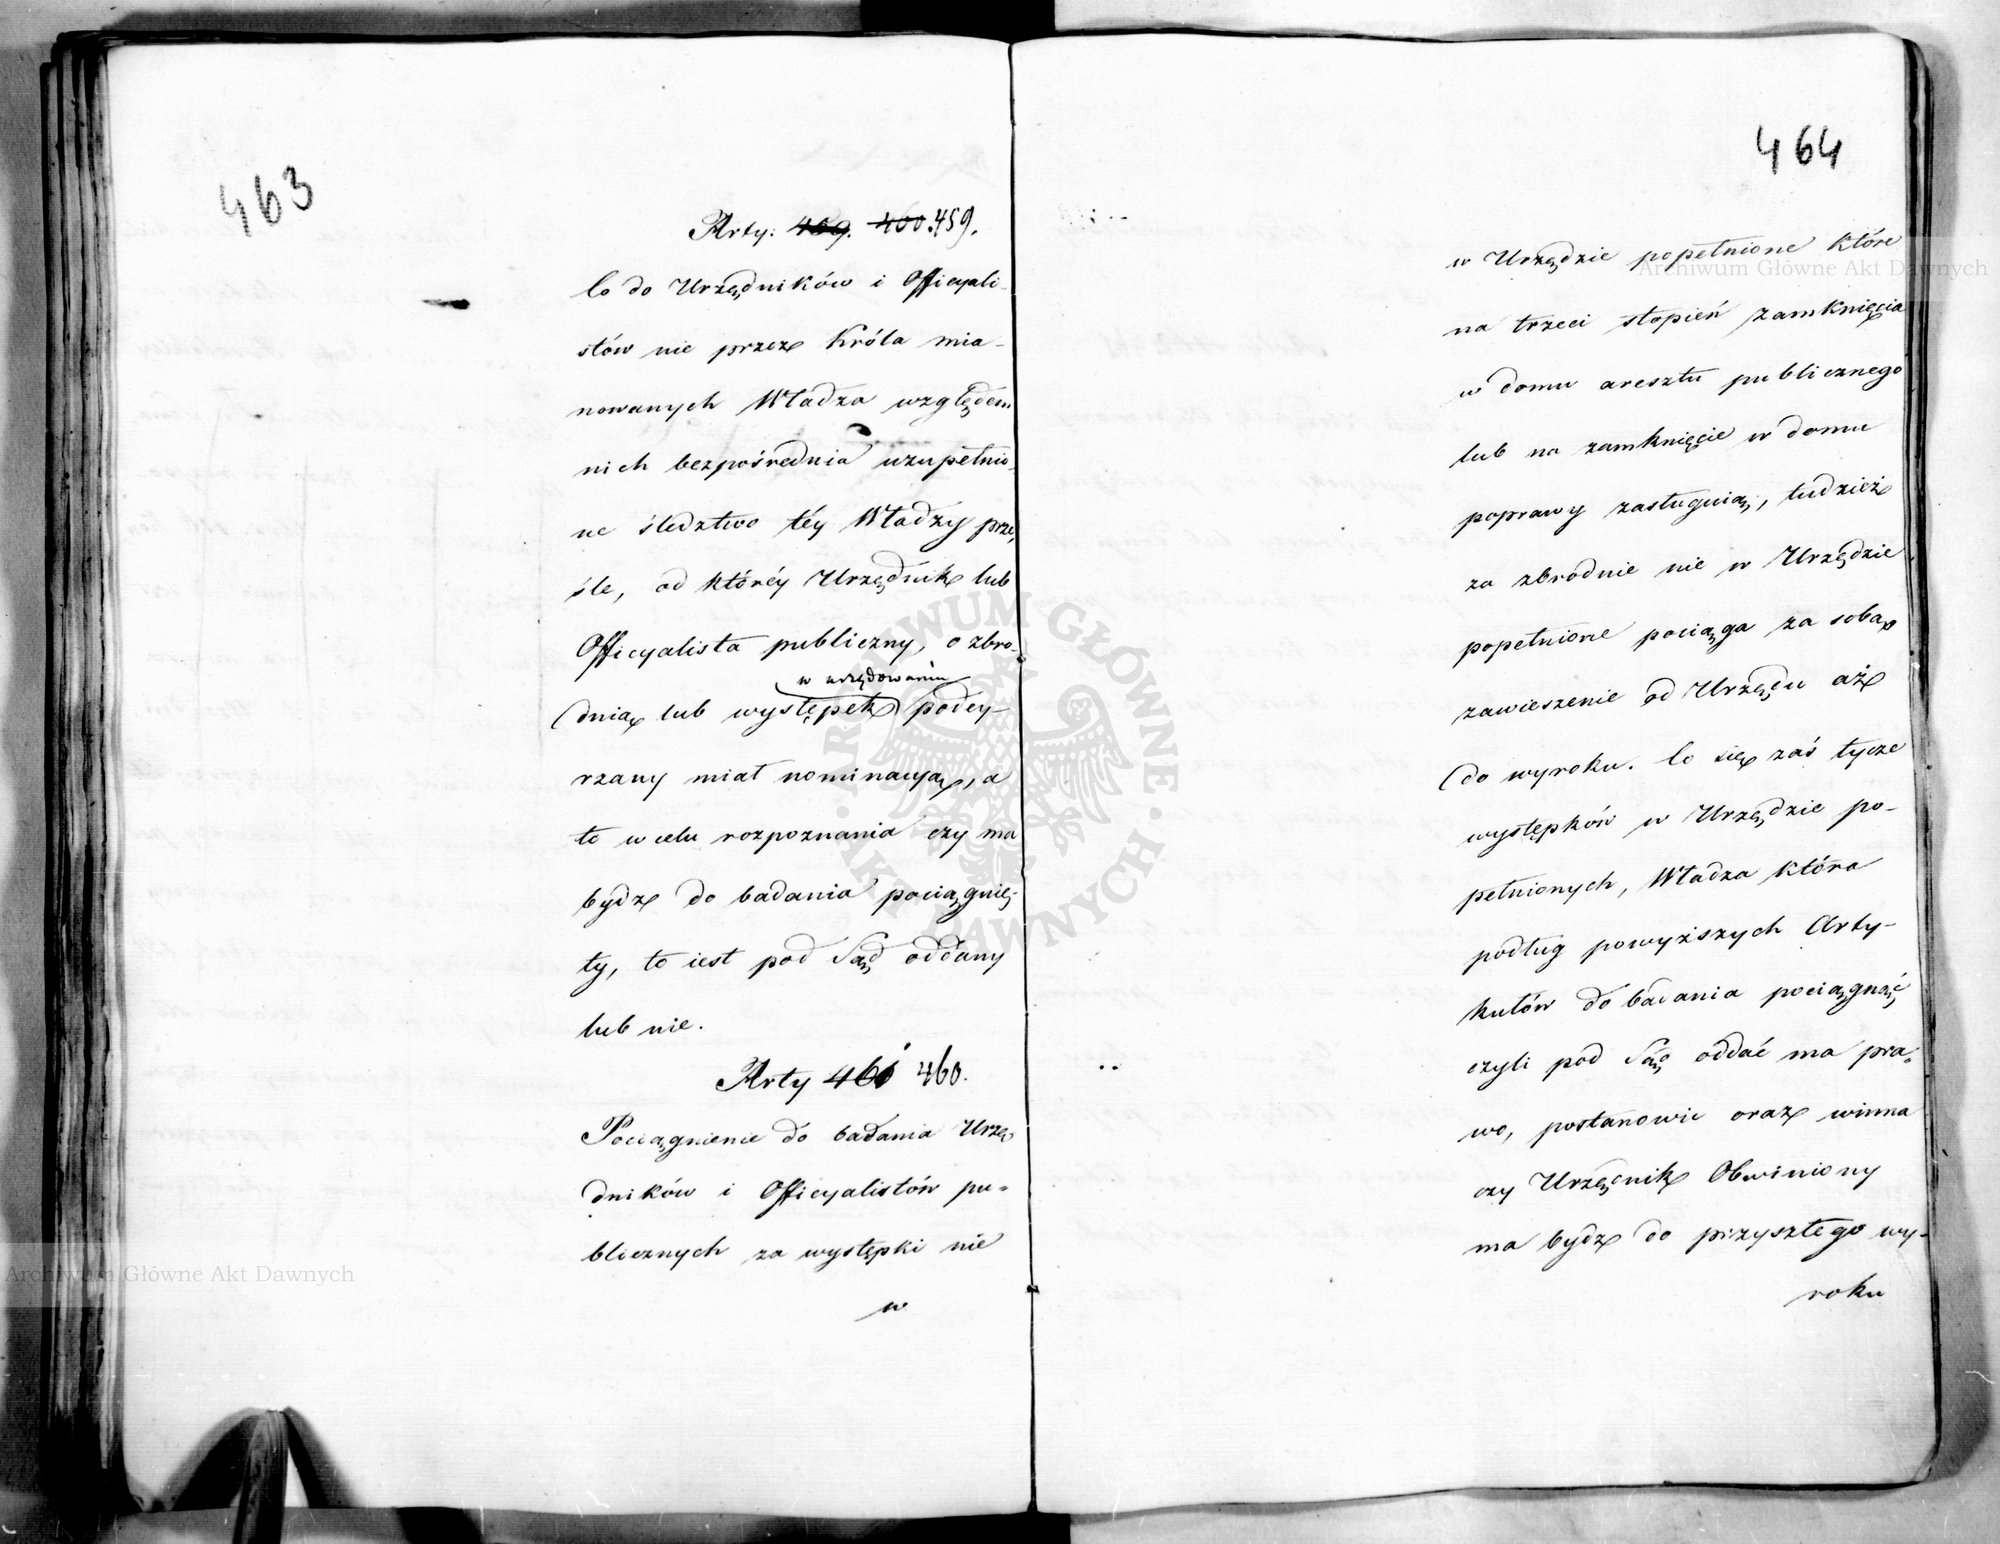 463
Arty: 469. 460. 459.
Co do Urzędników i Officyali-
stów nie przez Króla mia-
nowanych Władza względem
nich bezpośrednia uzupełnio-
ne śledztwo téy Władzy prze-
śle, od któréy Urzędnik lub
Officyalista publiczny, o zbro-
w urzędowaniu
dnią lub występek podey-
rzany miał nominacyą, a
to w celu rozpoznania czy ma
bydź do badania pociągnię-
ty, to iest pod Sąd oddany
lub nie.
Arty 461 460.
Pociągnienie do badania Urzę
dników i Officyalistów pu-
blicznych za występki nie
w
464
w Urzędzie popełnione które
na trzeci stopień zamknięcia
w domu aresztu publicznego
lub na zamknięcie w domu
poprawy zasługuią, tudzież
za zbrodnie nie w Urzędzie
popełnione pociąga za sobą
zawieszenie od Urzędu aż
do wyroku. Co się zaś tycze
występków w Urzędzie po-
pełnionych, Władza która
podług powyższych Arty-
kułów do badania pociągnąć
czyli pod Sąd oddać ma pra-
wo, postanowić oraz winna
czy Urzędnik Obwiniony
ma bydź do przyszłego wy-
roku
Archiwum Główne Akt Dawnych
Archiwum Główne Akt Dawnych
ARCHIWUM GŁÓWNE AKT DAWNYCH